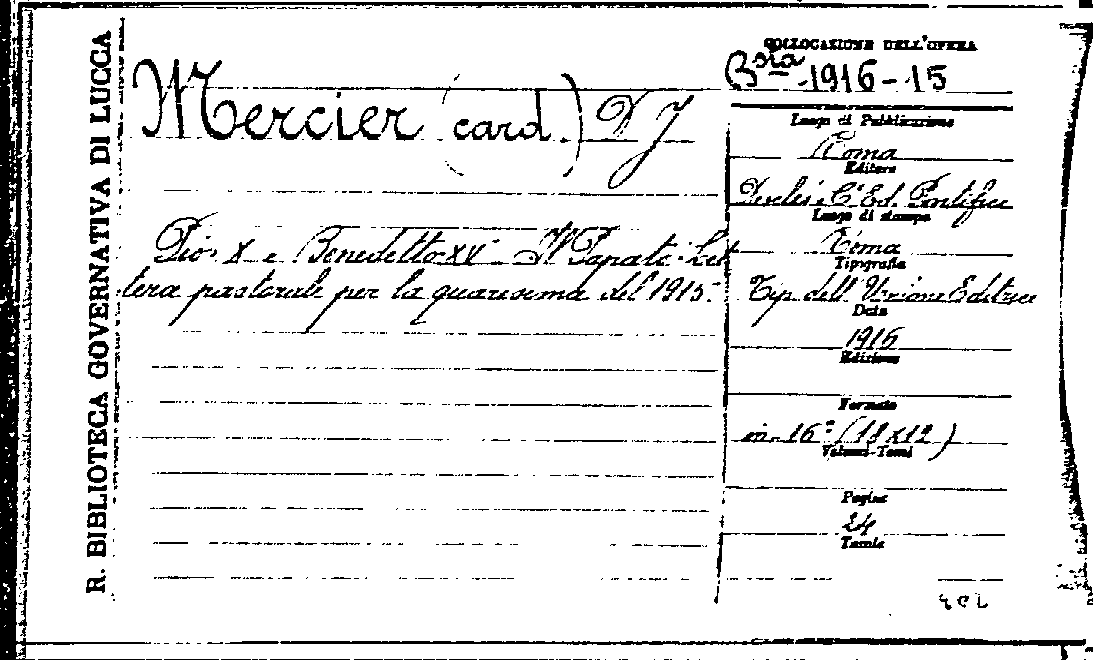 R. BIBLIOTECA GOVERNATIVA DI LUCCA
Mercier (card.) D J
Pio X e Benedetto XV - Il Papato. Let
tera pastorale per la quaresima del 1915.
COLLOCAZIONE DELL'OPERA
Bsta 1916-15
Luogo di Pubblicazione
Roma
Editore
Desclée C' Ed. Pontifici
Luogo di stampa
Roma
Tipografia
Tip. dell'Unione Editrice
Data
1916
Edizione
Formato
in-16° (18x12)
Volumi-Tomi
Pagine
24
Tavole